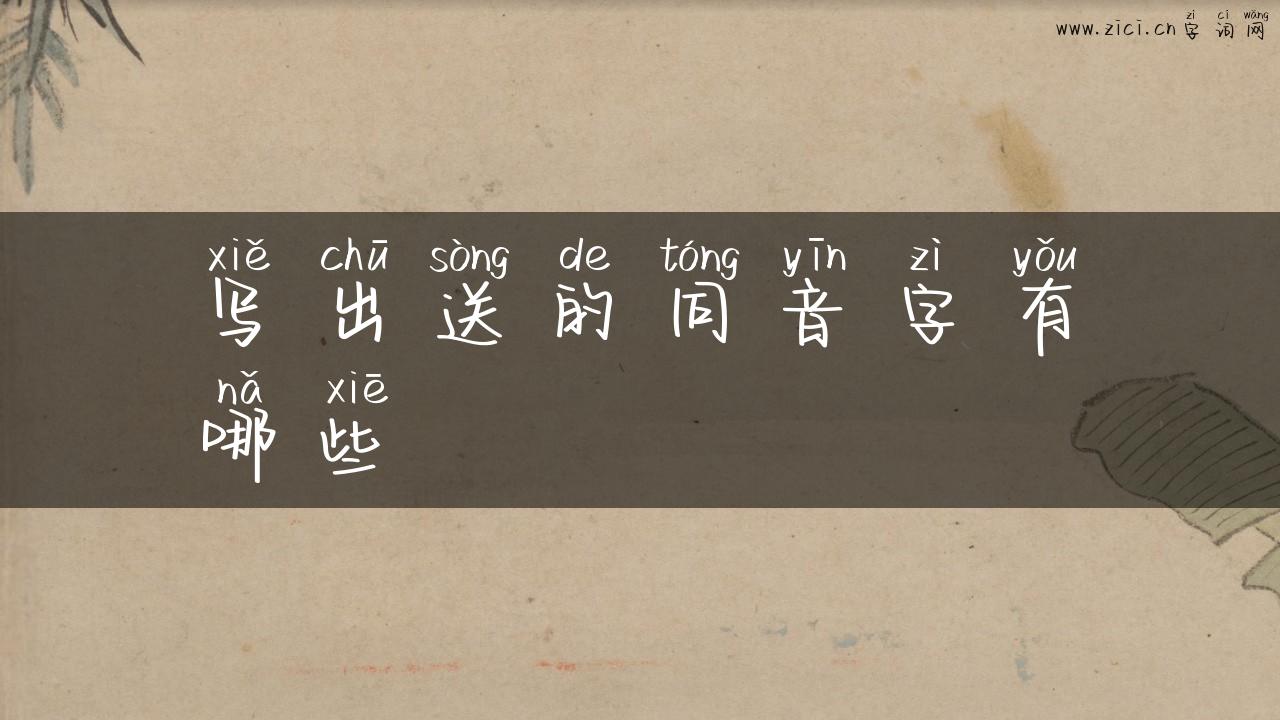 zì cí wǎng
www.zici.cn 字词网
xiě chū sòng de tóng yīn zì yǒu
写出送的同音字有
nǎ xiē
哪些